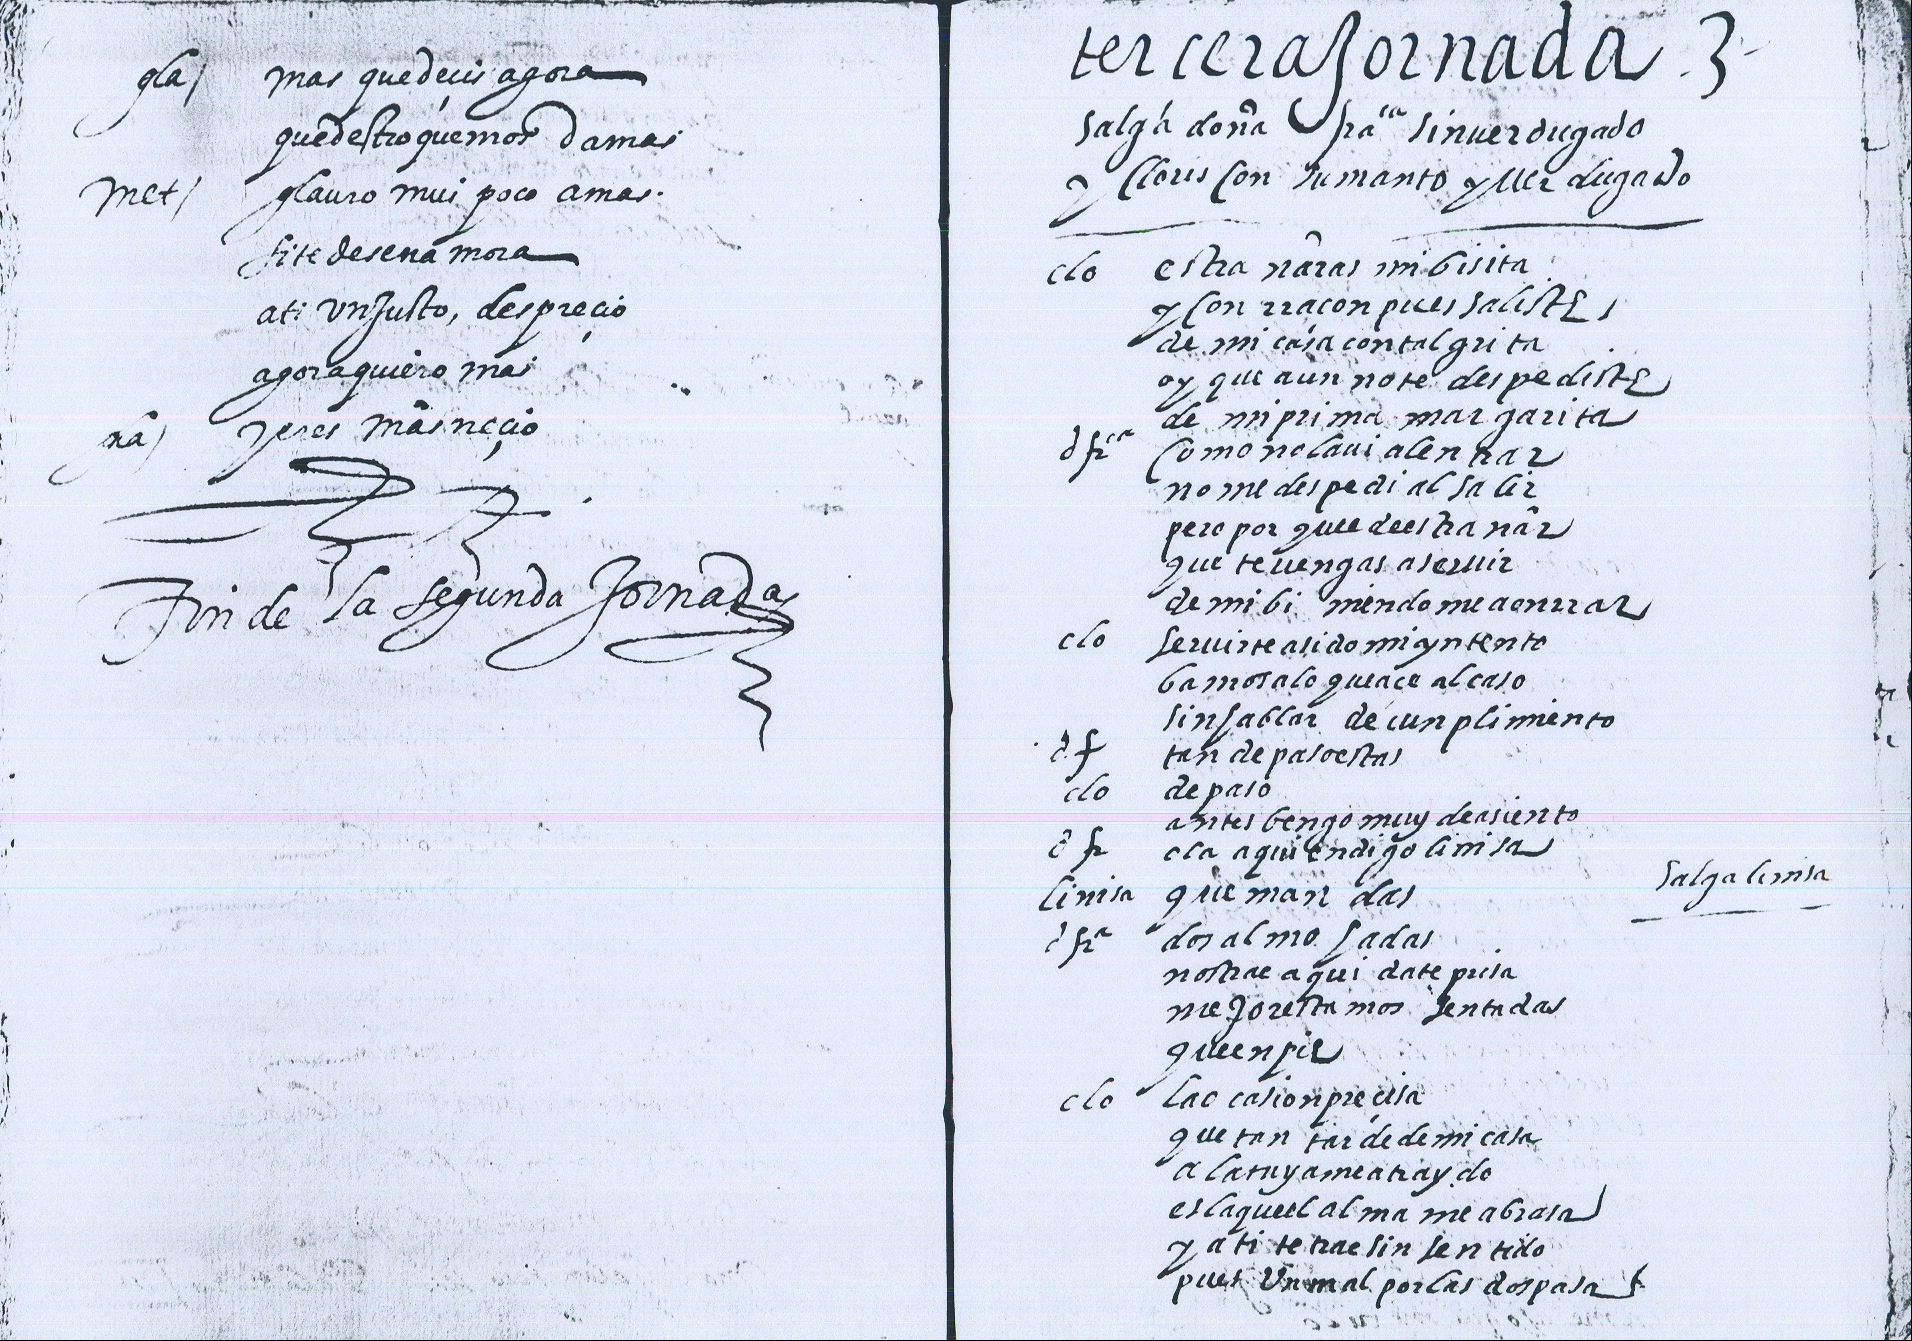 gla/ mas que deçis agora
que destroquemos damas
met/ glauro mui poco amas.
si te desenamora
a ti un justo, despreçio
agora quiero mas
gla/ y eres mas neçio
Fin de la segunda Jornada
tercera Jornada 3
salga doña fra^ca sin verdugado
y cloris con su manto y verdugado
clo estrañaras mi bisita
y con rraçon pues saliste
de mi casa con tal grita
oy que aun no te despediste
de mi prima margarita
d fr^ca como no la vi al entrar
no me despedi al salir
pero por que e de estrañar
que te vengas a servir
de mi bi niendome a onrrar
clo servirte a sido mi yntento
bamos a lo que açe al caso
sin hablar de cunplimiento
d f tan de paso estas
clo de paso
antes bengo muy de asiento
d fr ola a quien digo linisa
salga linisa
linisa que man das
d fr^a dos almo hadas
nos trae aqui date prisa
mejor estamos sentadas
que en pie
clo la o casion preçisa
que tan tarde de mi casa
a la tuya me a traydo
es la que el alma me abrasa
y a ti te trae sin sentido
pues un mal por las dos pasa